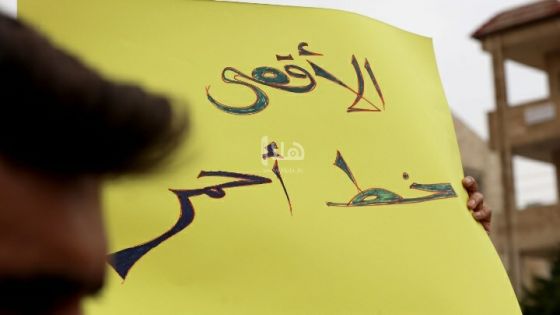 الأقصى
خط أحمر